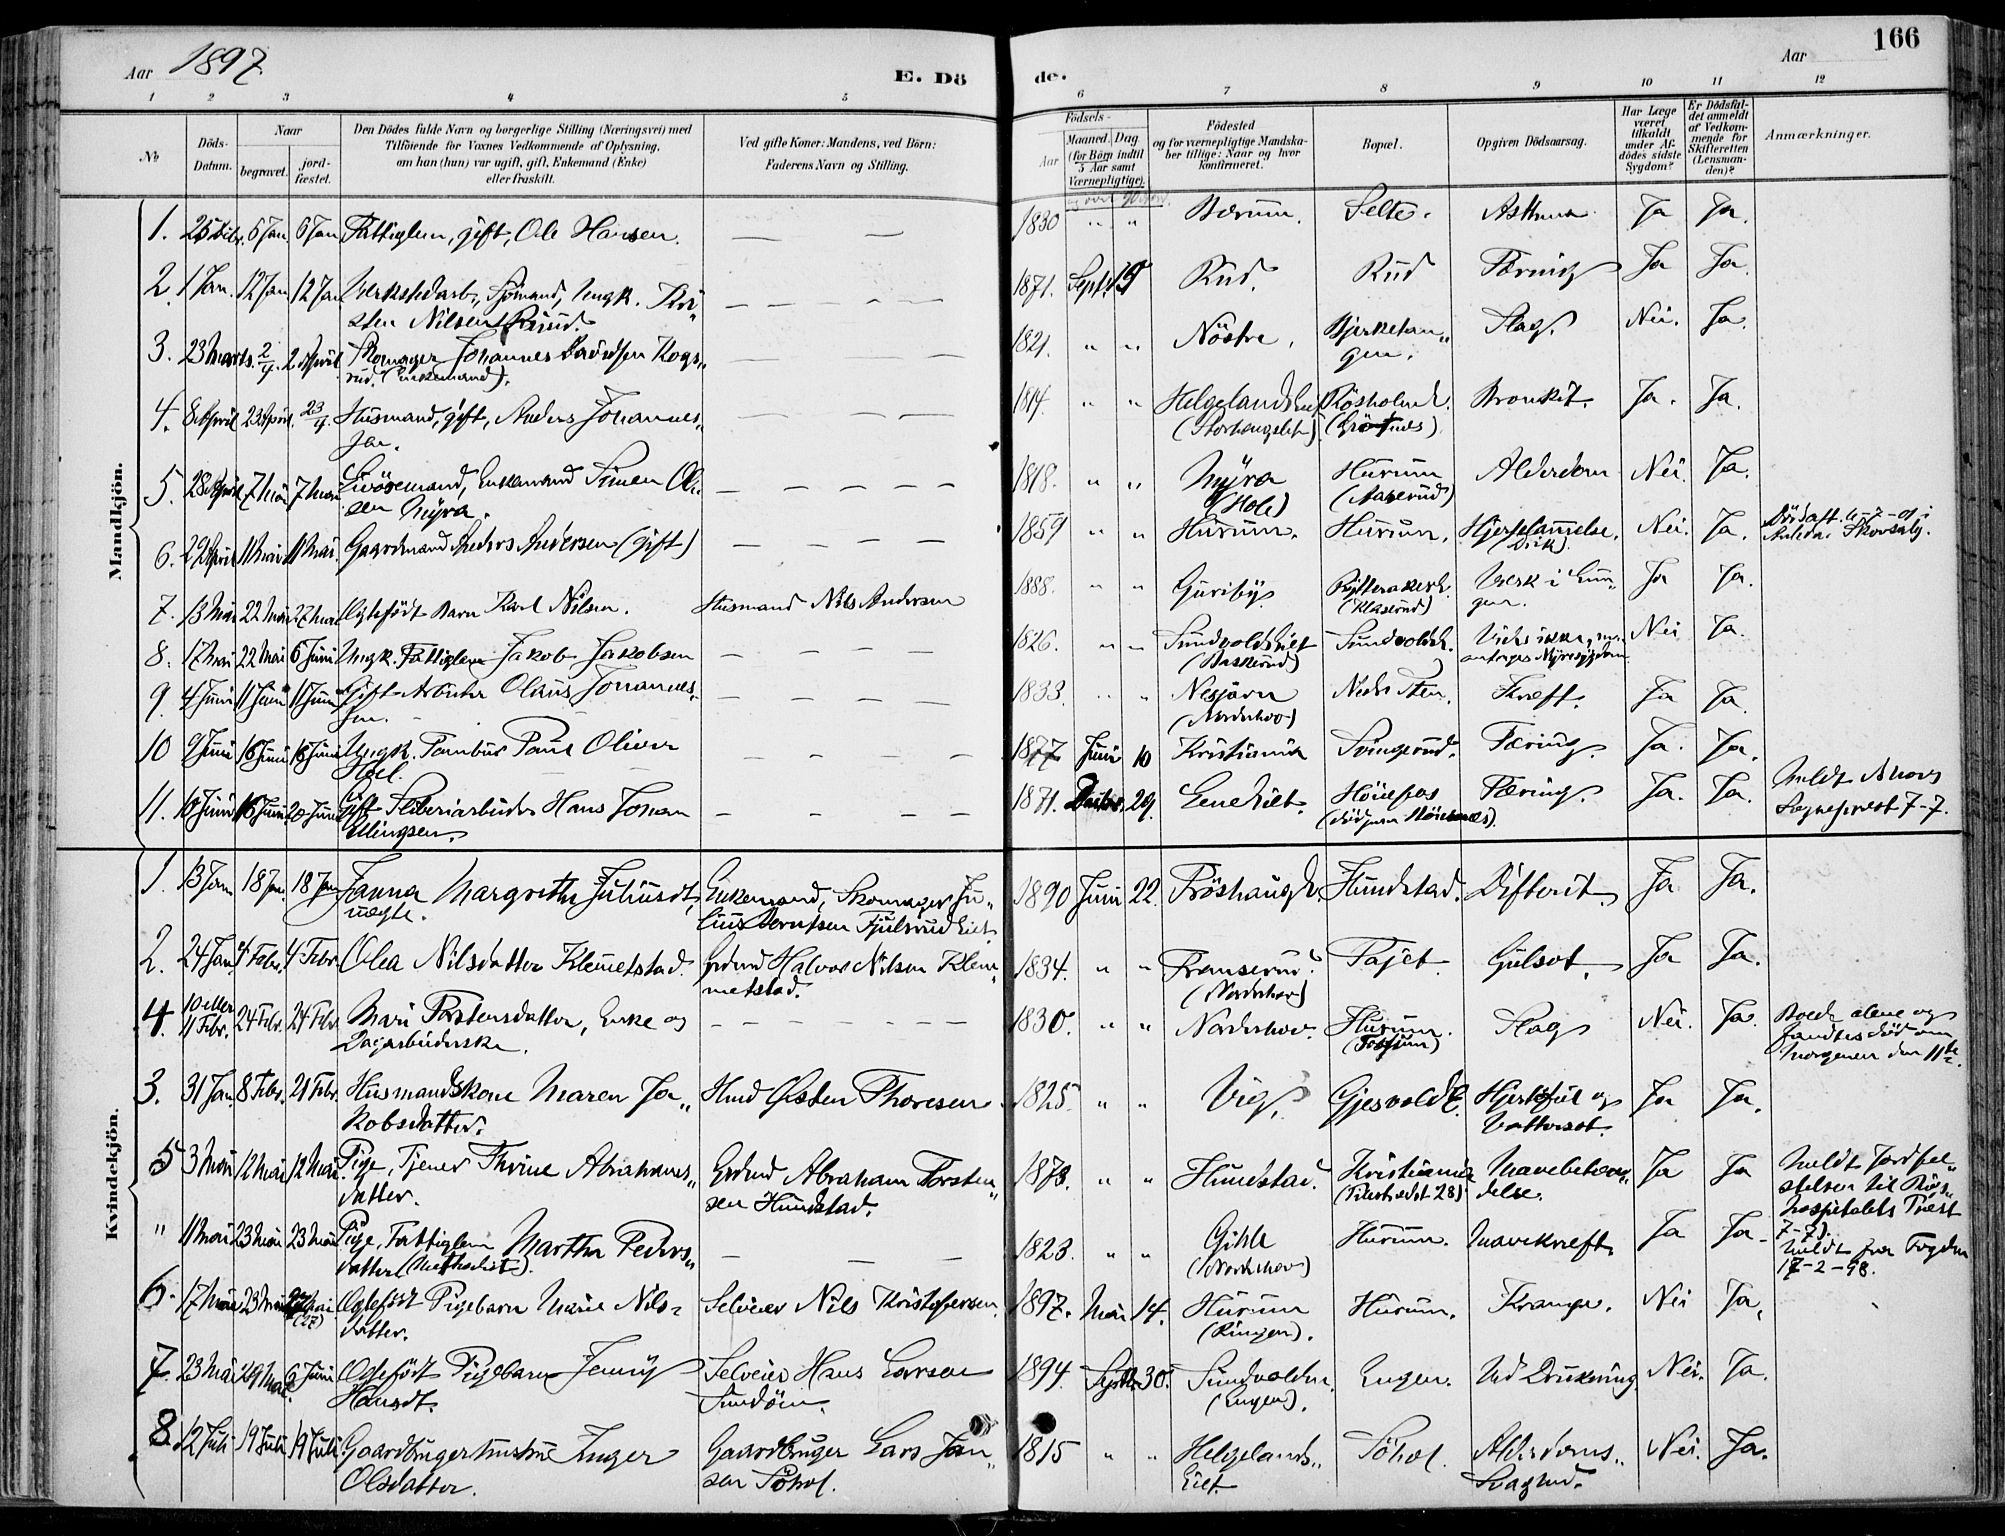 166
Aar 1897.
E. Dö
de.
Aar
1 2 3 4 5 6 7 8 9 10 11 12
No
Döds-Datum.
Naar
begravet.
jord-fæstet.
Den Dödes fulde Navn og borgerlige Stilling (Næringsvei) med
Tilföiende for Voxnes Vedkommende af Oplysning,
om han (hun) var ugift, gift, Enkemand (Enke)
eller fraskilt.
Ved gifte Koner: Mandens, ved Börn:
Faderens Navn og Stilling.
Födsels-
Aar
Maaned. Dag
(for Börn indtil
5 Aar samt
Værnepligtige).
Födested
og for værnepligtige Mandska-
ber tillige: Naar og hvor
konfirmeret.
Bopæl.
Opgiven Dödsaarsag.
Har Læge
været
tilkaldt
under Af-
dödes sidste
Sygdom?
Er Dödsfal-
det anmeldt
af Vedkom-
mende for
Skifteretten
(Lensman-
den)?
Anmærkninger.
Mandkjön.
1. 25 Dcbr. 6 Jan. 6 Jan. Fattiglem, gift, Ole Hansen. — — 1830 " " Bærum. Selte. Asthma Ja Ja.
2. 1 Jan. 12 Jan. 12 Jan. Verkstedarb., Sjömand, Ungk. Kri-
sten Nilsen Ruud. — — — — — 1871. Septr. 19 Rud. Rud Tæring Ja Ja.
3. 23 Marts. 2/4. 2 April. Skomager Johannes Davidsen Kogs-
rud. (Enkemand). — — 1821. " " Nöstre. Bjerketan-
gen. Slag. Nei. Ja.
4. 8 April 23 April. 23/4. Husmand, gift, Anders Johannes-
sen. — — — 1814. " " Helgelandseiet
(Storhengslet) Rösholmd. Bronkit. Ja. Ja.
5. 28 April 7 Mai 7 Mai Livöremand, Enkemand Simen Ol-
sen Myra. — — — — — 1818. " " Myra
(Hole) Hurum
(Aaserud) Alderdom Nei. Ja.
6. 29 April 11 Mai 11 Mai. Gaardmand Anders Andersen (gift) — — — — 1859 " " Hurum. Hurum. Hjertelammelse.
(Drik). Nei. Ja.
7. 13 Mai 22 Mai 27 Mai Ægtefödt Barn Karl Nilsen. Husmand Nils Andersen 1888. " " Guriby. Rytterakerd.
(Klaserud) Værk i Lun-
gen. Ja Ja.
8. 17 Mai 22 Mai 6 Juni Ungk. Fattiglem Jakob Jakobsen — — — — — 1826. " " Sundvoldseiet
(Baskerud) Sundvoldsd. Vides ikke, men
antages Nyresygdom. Nei Ja.
9. 4 Juni 11 Juni 11 Juni Gift Arbeider Olaus Johannes-
sen. — — — — — 1833. " " Nesjörn
(Norderhov) Nedr. Sten. Kræft. Ja Ja.
10 9 Juni 16 Juni 16 Juni Ungk. Tambur Paul Oliver
Hoel. — — — — 1877 Juni 10 Kristiania Svingerud. Tæring. Ja. Ja.
11. 10 Juni 16 Juni 20 Juni Gift Sliberiarbeider Hans Johan
Ellingsen. — — — — — 1871. Dcbr. 29. Lene Eiet. Hönepos Tæring. Ja. Ja. Meldt Ahovs
Sognepræst 7-7.
Kvindekjön.
1. 13 Jan. 18 Jan. 18 Jan. Janna Margrethe Juliusdt.
uægte. Enkemand, Skomager Ju-
lius Berntsen Fjulsrud Eiet. 1890 Juni 22. Fröshaugd. Hundstad. Difterit. Ja Ja.
2. 24 Jan. 4 Febr. 4 Febr. Olea Nilsdatter Klemetstad. Grdmd Halvor Nilsen Klem-
metstad. 1834. " " Franserud.
(Norderhov) Fajet. Gulsot. Ja Ja.
4. 10 eller
11 Febr. 24 Febr. 24 Febr. Mari Torstensdatter, Enke og
Dagarbeiderske. — — — — — — 1830. " " Norderhov. Hurum.
(Fossum) Slag Nei. Ja. Boede alene og
fandtes död om
Morgenen den 11te
3. 31 Jan. 8 Febr. 21 Febr. Husmandskone Maren Ja-
kobsdatter. Hmd Østen Thoresen 1825. " " Vig. Gjesvold E. Hjertefeil og
Vattersot. Ja Ja.
5 3 Mai 12 Mai 12 Mai. Pige, Tjener Thrine Abrahams-
datter. Grdmd Abraham Torsten-
sen Hundstad. 1878. " " Hundstad. Kristiania Mavebetæn-
delse. Ja Ja Meldt Jordfæ-
stelsen til Rigs-
hospitalets Præst
7-7).
" 11 Mai 23 Mai 23 Mai Pige, Fattiglem Martha Peders-
datter (Methodist). — — — 1823. " " Gihle
(Norderhov) Hurum. Mavekræft. Ja Ja. Meldt fra Fogden
17-2-98.
6. 17 Mai 23 Mai 27 Mai
(27) Ægtefödt Pigebarn Marie Nils-
datter. Selveier Nils Kristofersen. 1897. Mai 14. Hurum
(Ringen). Hurum. Krampe. Nei Ja.
7. 23 Mai 29 Mai. 6 Juni Ægtefödt Pigebarn Jenny
Hansdt. Selveier Hans Larsen
Sundöen. 1894. Septbr. 30. Sundvolden.
(Engen). Engen. Ved Drukning. Nei. Ja.
8. 12 Juli 19 Juli 19 Juli Gaardbrugerhustru Inger
Olsdatter. Gaardbruger Lars Jan-
sen Söhol. 1815 " " Helgelands-
Eiet. Söhol. Alderdoms-
Svaghed. Nei. Ja.